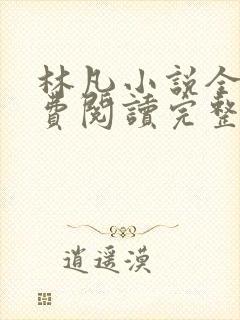 林凡小說全
費閱讀完整
逍遥漠